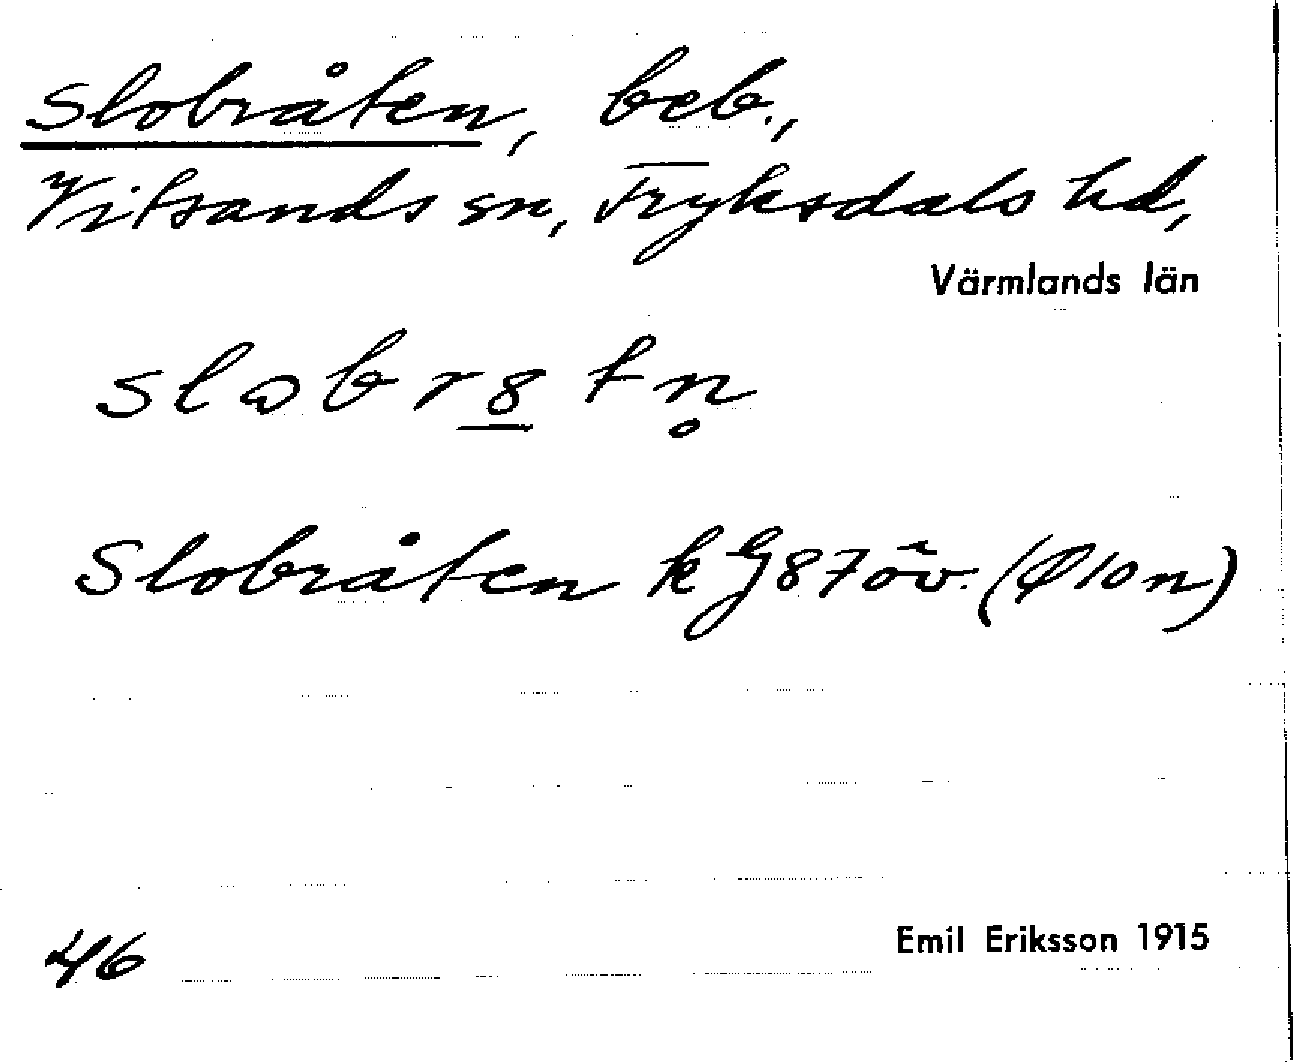 Slobråten, beb.,
Vitsands sn, Fryksdals hd,
Värmlands län
Slobråten kG87öv. (Ø10n)
46
Emil Eriksson 1915